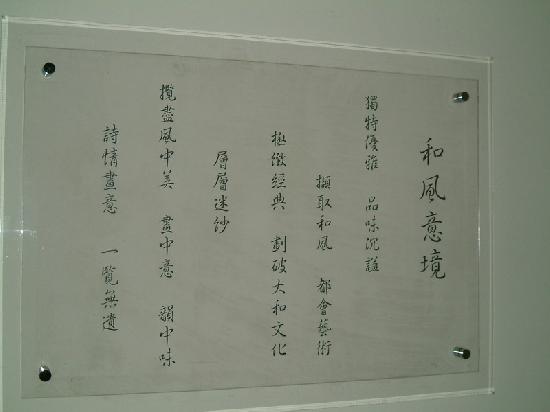 和風意境
獨特優雅 品味沉謐
擷取和風 都會藝術
極緻經典 劃破大和文化
層層迷紗
攬盡風中美 畫中意 韻中味
詩情畫意 一覽無遺